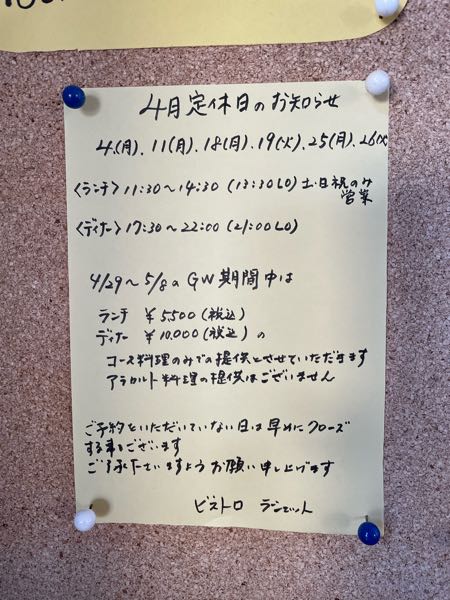 4月定休日のお知らせ
4.(月)、11(月)、18(月)、19(火)、25(月)、26(火
〈ランチ〉11:30〜14:30 (13:30LO) 土・日祝のみ
営業
〈ディナー〉17:30〜22:00 (21:00LO)
4/29〜5/8の GW期間中は
ランチ ¥5,500 (税込)
ディナー ¥10,000 (税込) の
コース料理のみでの提供とさせていただきます
アラカルト料理の提供はございません
ご予約をいただいていない日は早めにクローズ
する事もございます
ご了承下さいますようお願い申し上げます
ビストロ